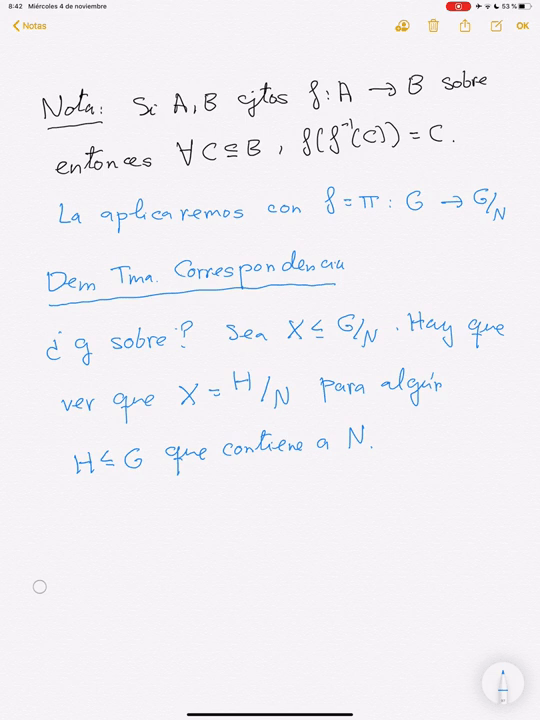 8:42 Miércoles 4 de noviembre 53 %
Notas OK
Nota: Si A, B cjtos f: A → B sobre
entonces ∀ C ⊆ B, f(f⁻¹(C)) = C.
La aplicaremos con f = π : G → G/N
Dem Tma. Correspondencia
¿g sobre? Sea X ≤ G/N. Hay que
ver que X = H/N para algún
H ≤ G que contiene a N.